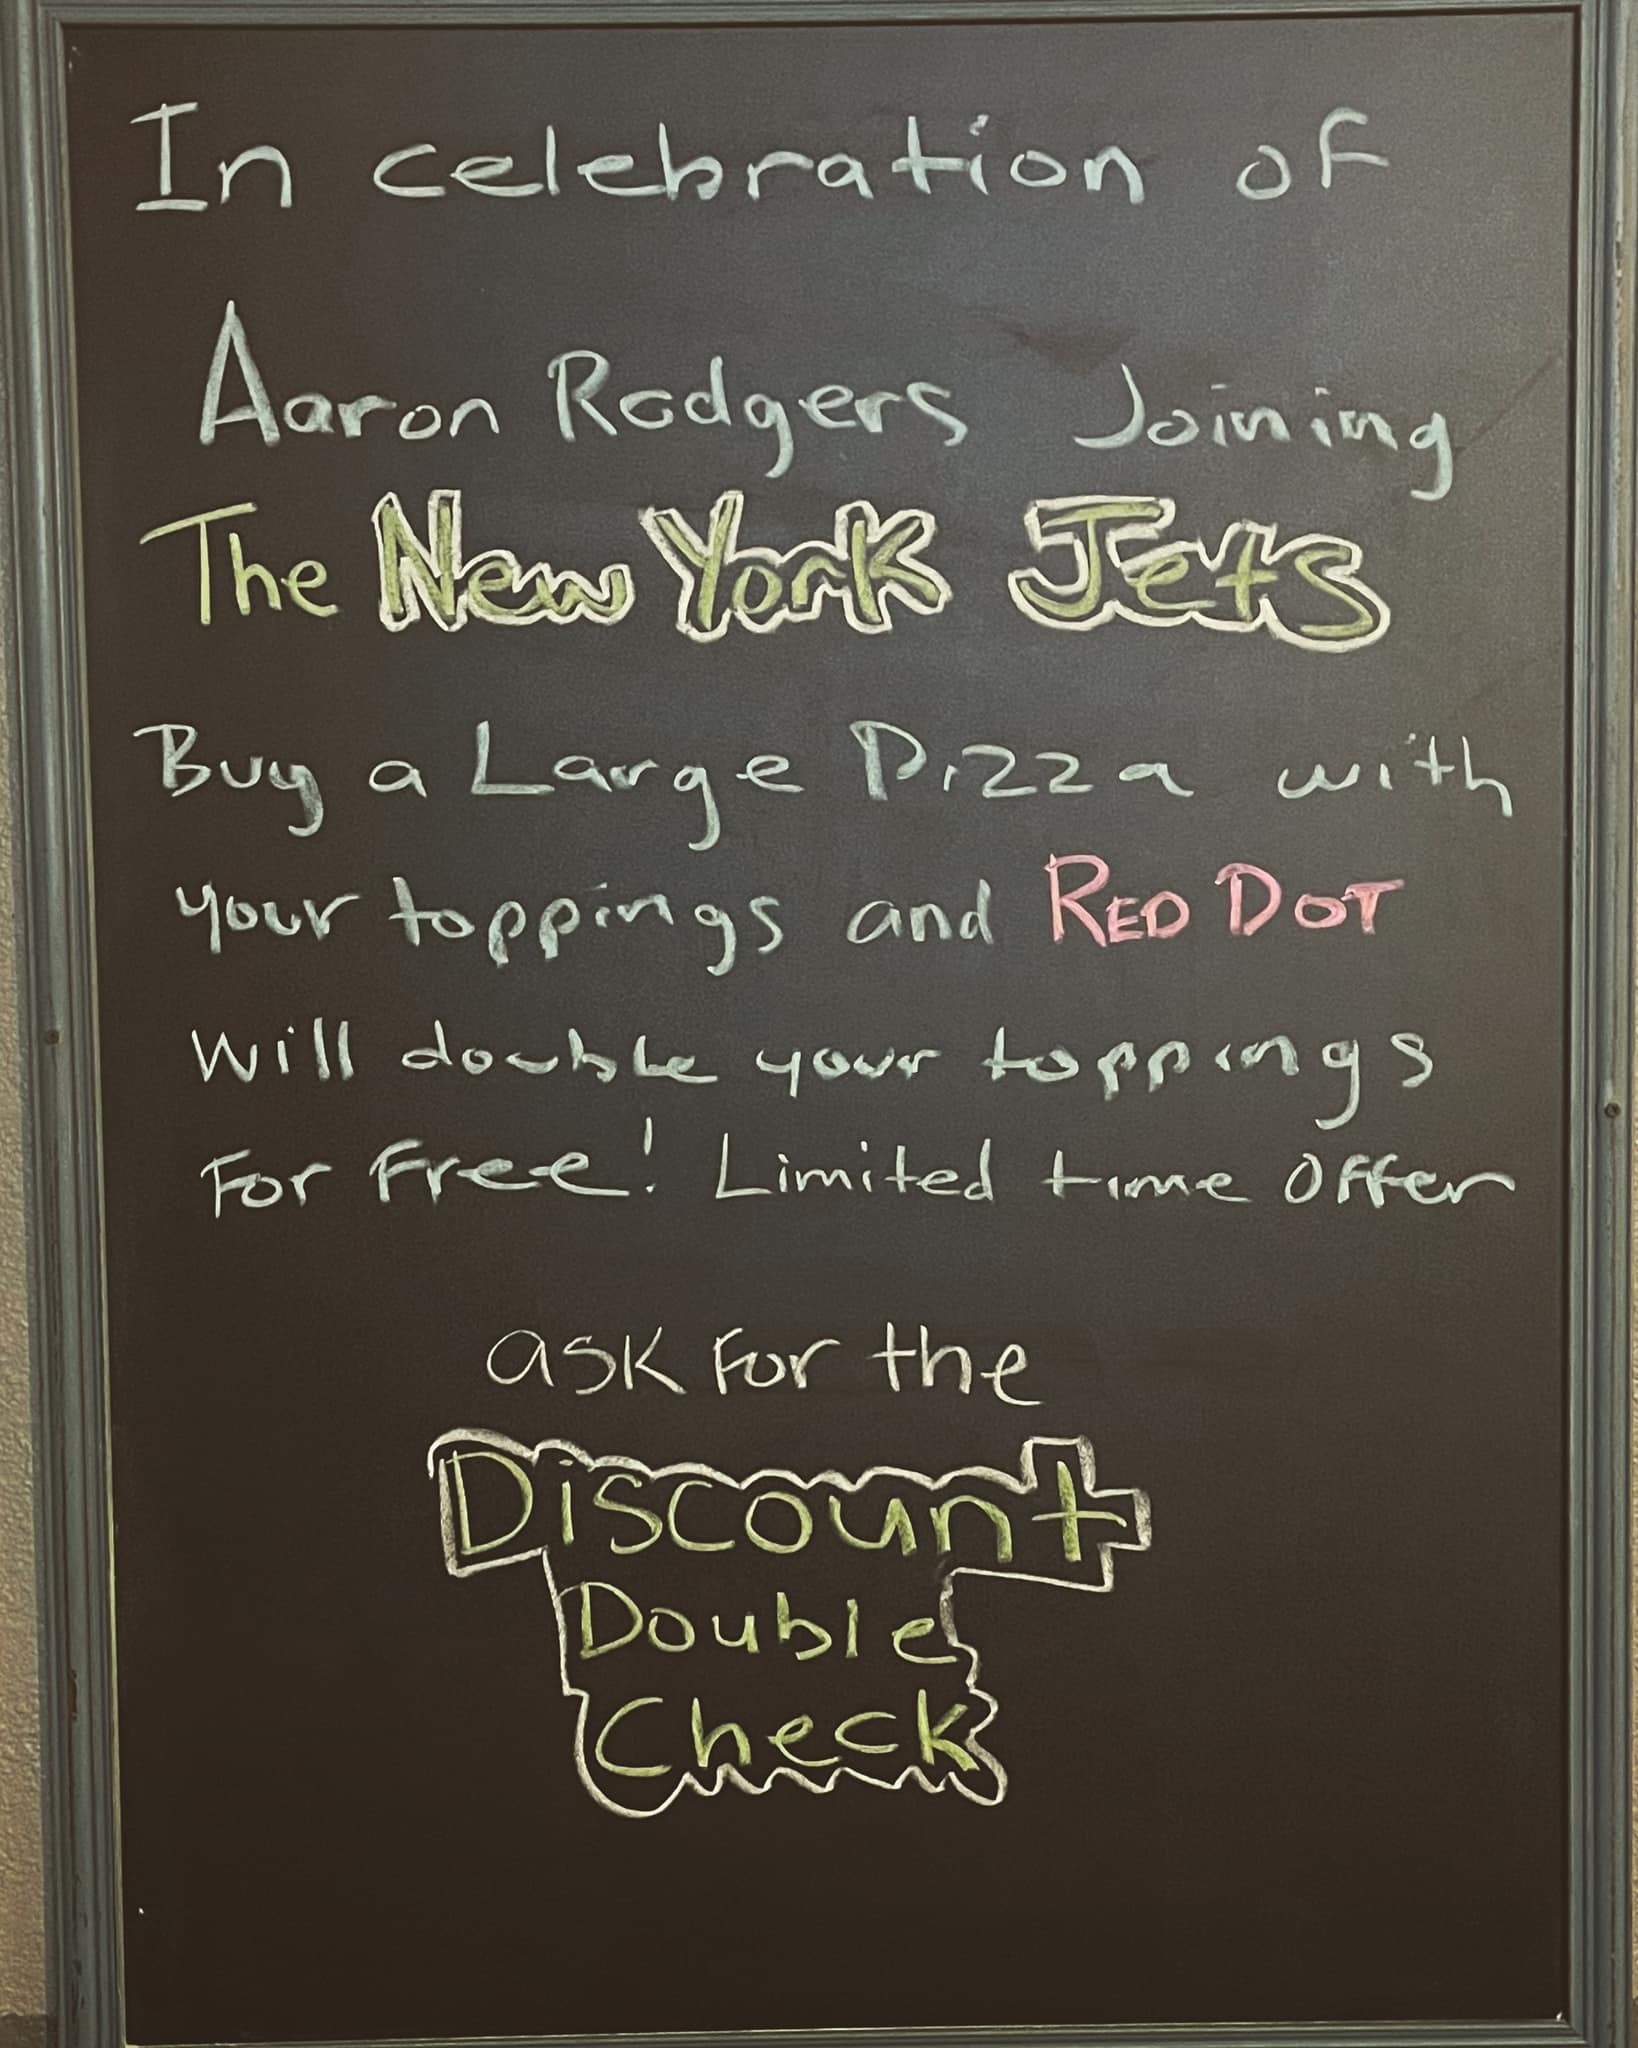 In celebration of
Aaron Rodgers Joining
The New York Jets
Buy a Large Pizza with
your toppings and RED DOT
will double your toppings
For Free! Limited time offer
ask for the
Discount
Double
Check